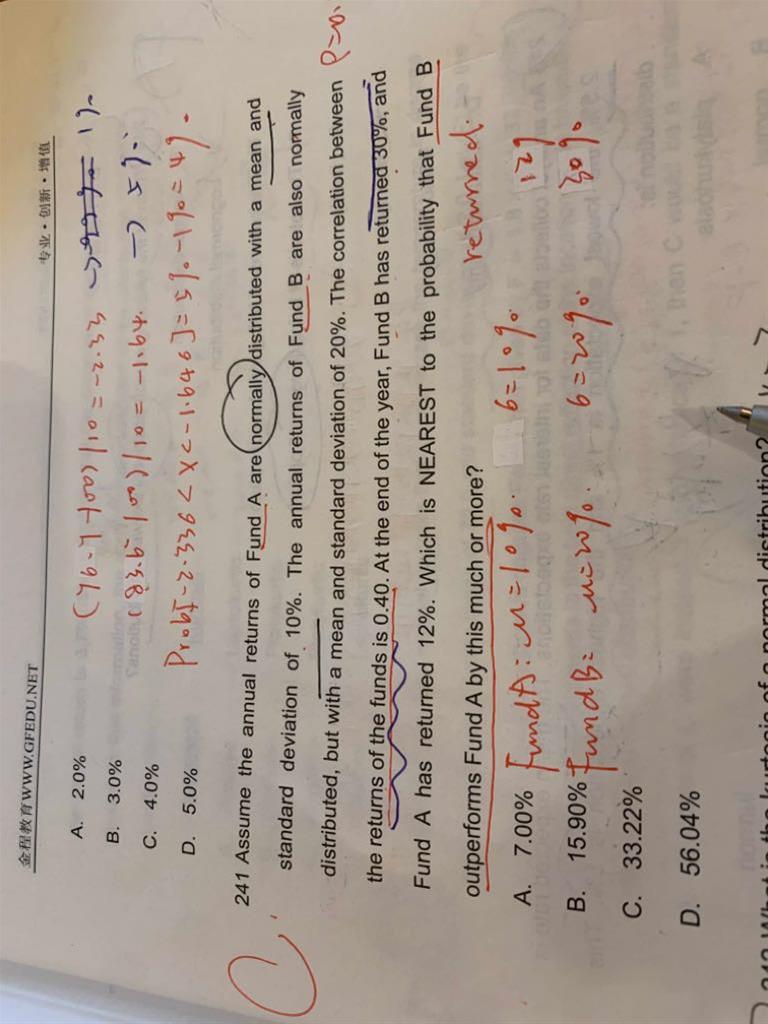 金程教育WWW.GFEDU.NET 专业·创新·增值
A. 2.0%
B. 3.0%
C. 4.0%
D. 5.0%
(76.7-100)/10=-2.33 → 1%
(83.6-100)/10=-1.64. → 5%.
Prob[-2.336<X<-1.646]=5%-1%=4%.
241 Assume the annual returns of Fund A are normally distributed with a mean and
standard deviation of 10%. The annual returns of Fund B are also normally
distributed, but with a mean and standard deviation of 20%. The correlation between
the returns of the funds is 0.40. At the end of the year, Fund B has returned 30%, and
Fund A has returned 12%. Which is NEAREST to the probability that Fund B
outperforms Fund A by this much or more?
returned.
A. 7.00%
B. 15.90%
C. 33.22%
D. 56.04%
Fund A: u=10%. б=10%. 12%
Fund B= u=20%. б=20%. 30%
C.